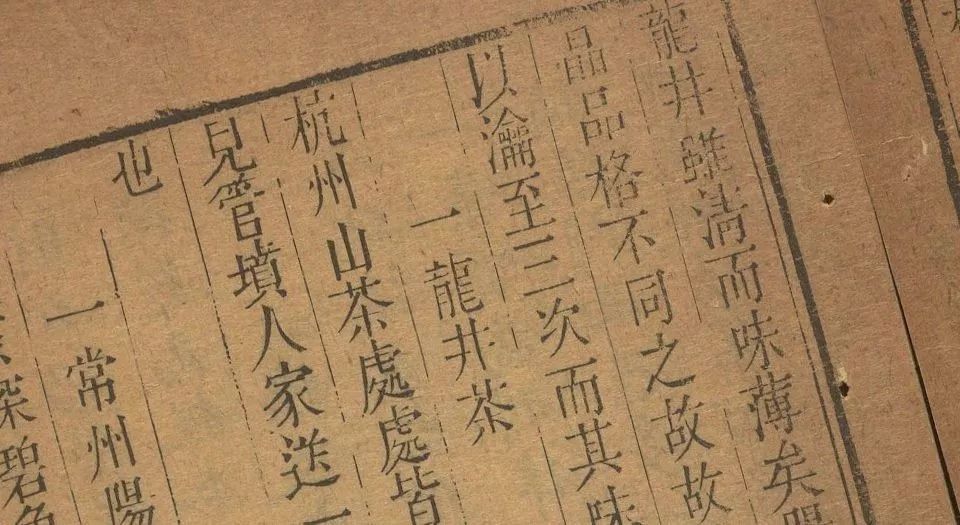 龍井雖清而味薄矣
晶品格不同之故故
以瀹至三次而其味
一龍井茶
杭州山茶處處皆
見管墳人家送一
也
一常州陽
深碧色